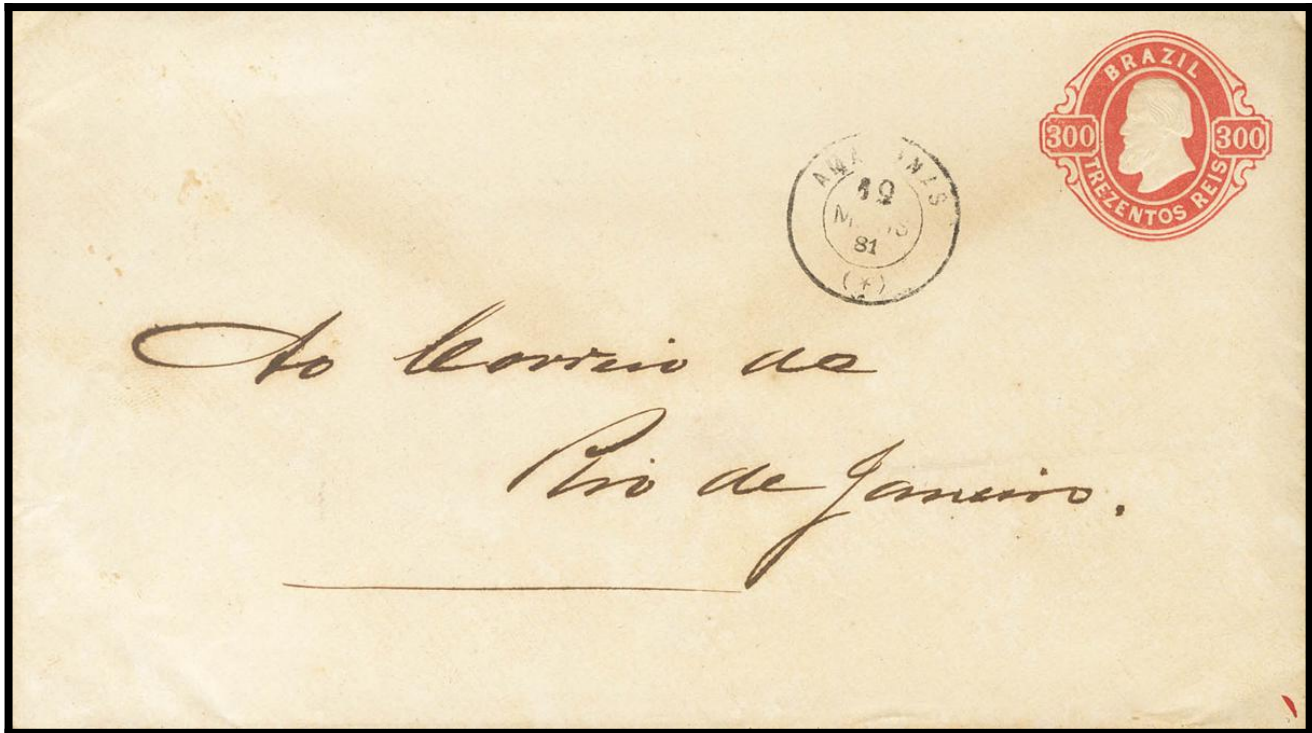 BRAZIL
300 300
TREZENTOS REIS
81
Ao Correio de
Rio de Janeiro.